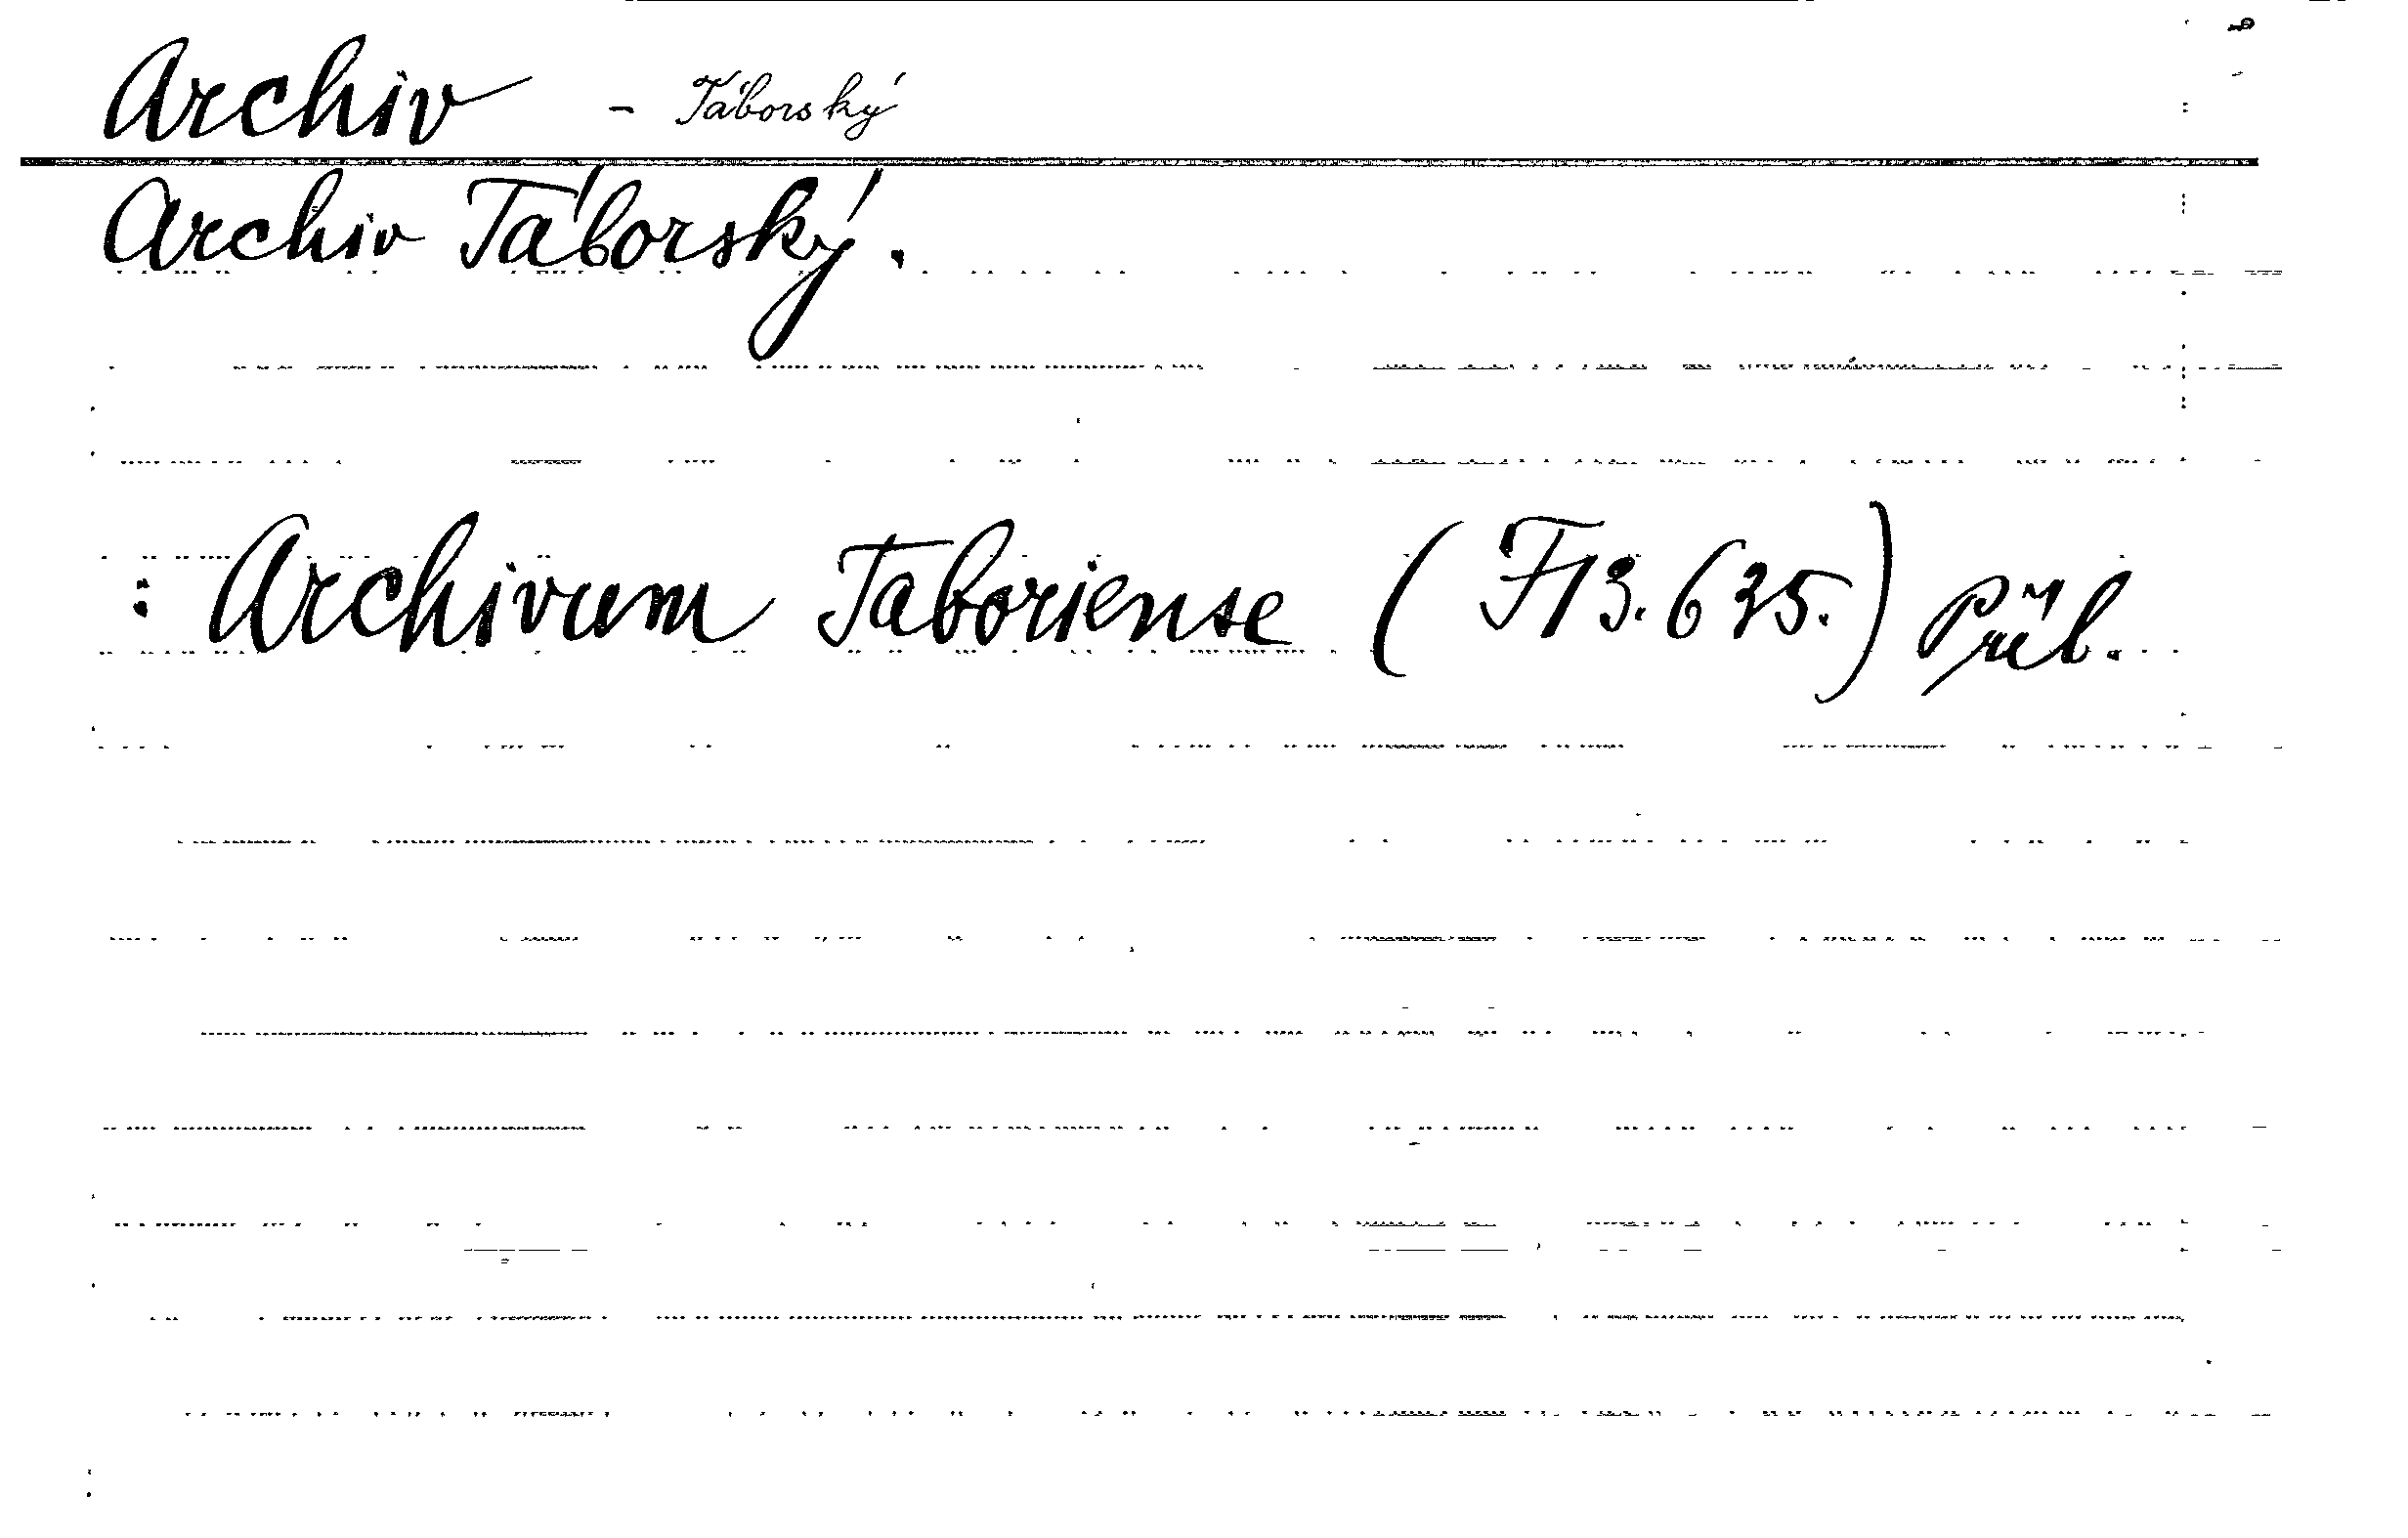 Archiv - Táborský
Archiv Táborský.
: Archivum Taboriense (F13.635.) Příl.